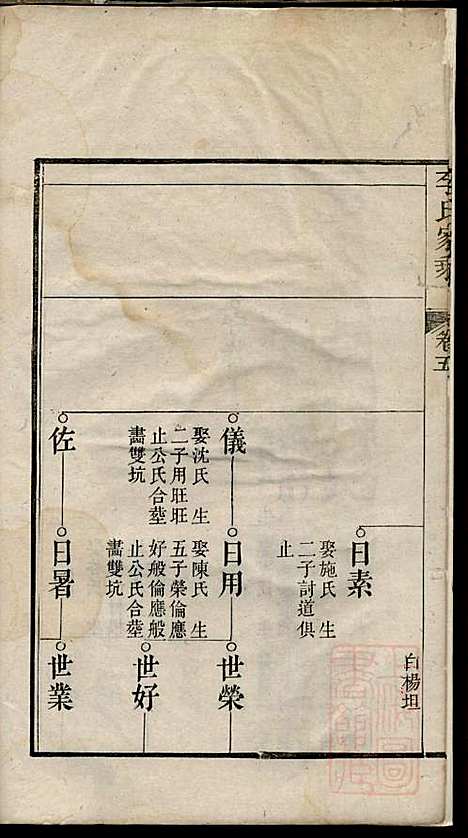 李氏家乘
卷五
白楊坦
日素
娶施氏生
二子討道俱
止
儀
娶沈氏生
二子用旺旺
止公氏合塟
畵雙坑
日用
娶陳氏生
五子榮倫應
好般倫應般
止公氏合塟
畵雙坑
世榮
世好
佐
日暑
世業